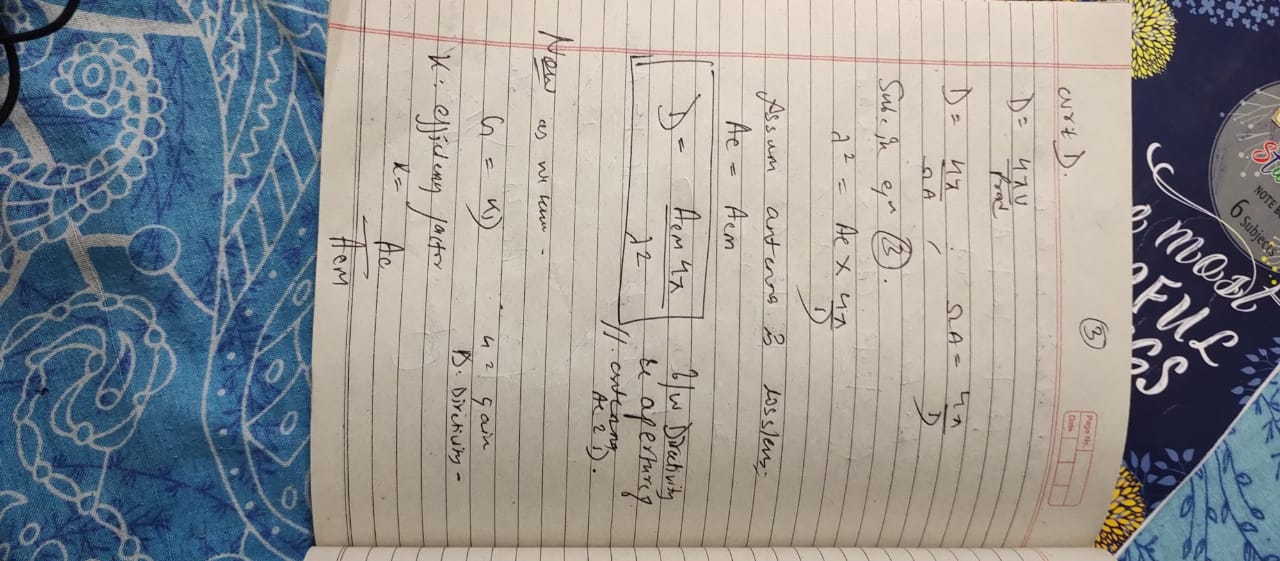 NOTE B
6 Subjects
MOST
FUL
GS
3
Page No.
Date
wrt D.
D = 4πU / Prad
D = 4π / ΩA ; ΩA = 4π / D
Subs in eqn (3).
λ² = Ae × 4π / D
Assum antenna is lossless;
Ae = Aem
D = Aem 4π / λ²
b/w Directivity
& aperture of
antenna
Ae & D.
Now as we know -
G = KD
G = gain
D: Directivity -
K: efficieny factor
K = Ae / Aem